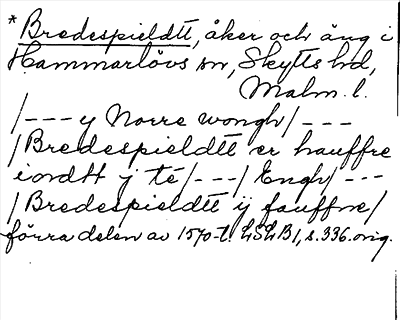 * Bredespieldtt, åker och äng i
Hammarlövs sn, Skytts hd,
Malm. l.
/--- y Norre wongh/ ---
/Bredespieldtt er hauffre
iordtt j te/---/ Engh/ ---
/Bredespieldtt ij fauffne/
förra delen av 1570-t. LSLB1, s. 336. orig.